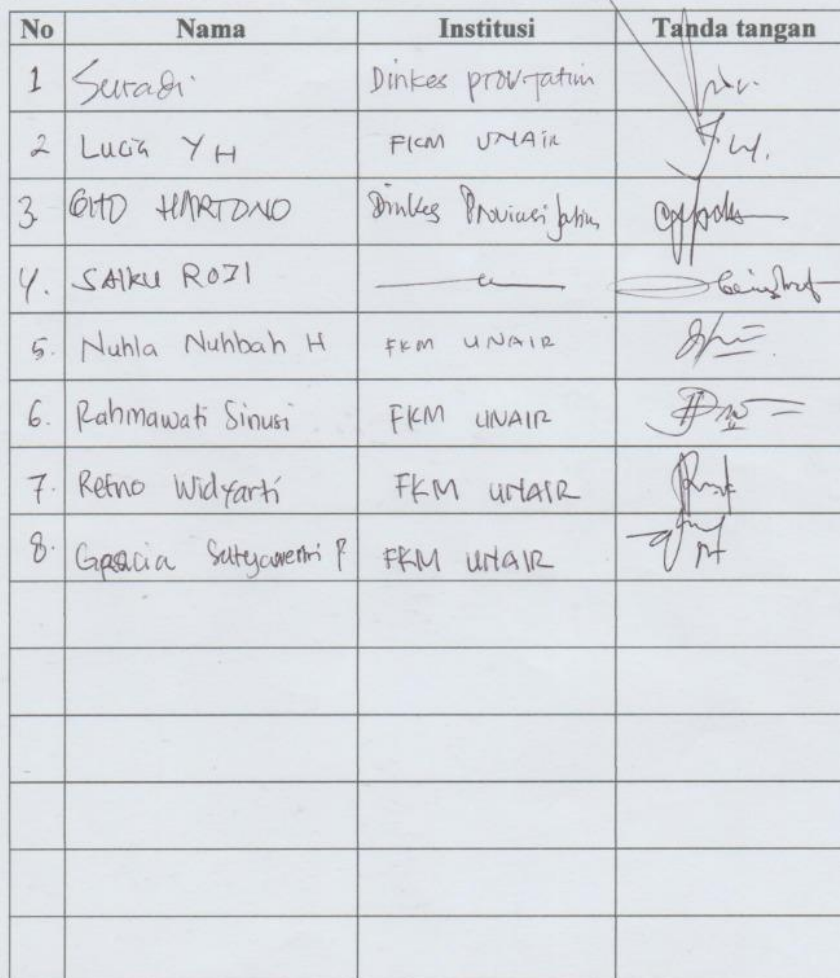 No Nama Institusi Tanda tangan
1 Suradi Dinkes prov Jatim
2 Lucia Y H FKM UNAIR
3. GITO HARTONO Dinkes Provinsi Jatim
4. SAIKU ROJI
5. Nuhla Nuhbah H FKM UNAIR
6. Rahmawati Sinusi FKM UNAIR
7. Retno Widyarti FKM UNAIR
8. FKM UNAIR